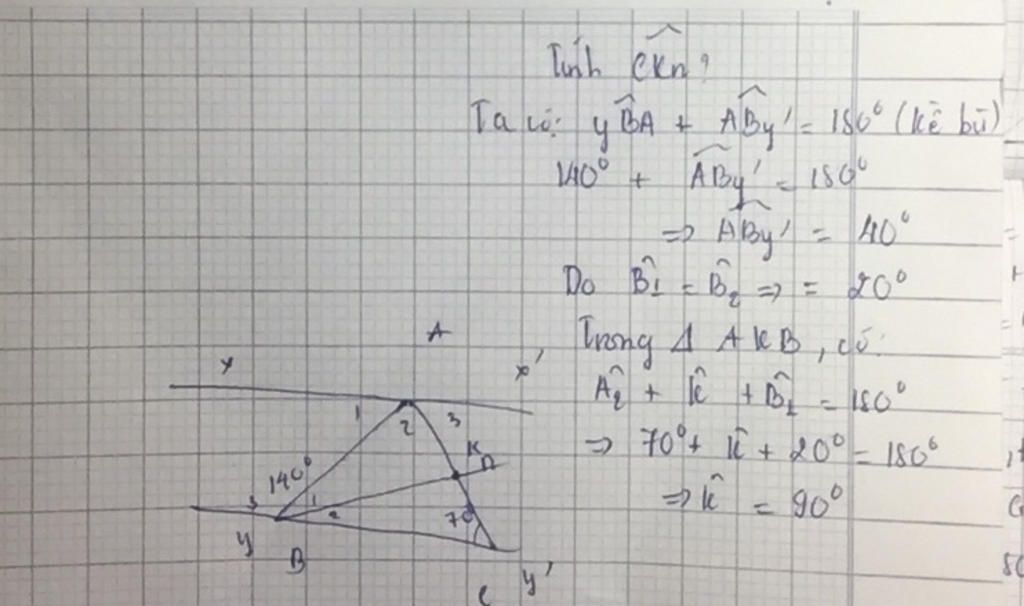 Tính CKn?
Ta có: yBA + ABy' = 180° (kề bù)
140° + ABy' = 180°
=> ABy' = 40°
Do B̂1 = B̂2 => = 20°
Trong Δ AKB, có:
Â2 + K̂ + B̂1 = 180°
=> 70° + K̂ + 20° = 180°
=> K̂ = 90°
A
x x'
1 2 3
K n
140°
3 1 2 70
y B C y'